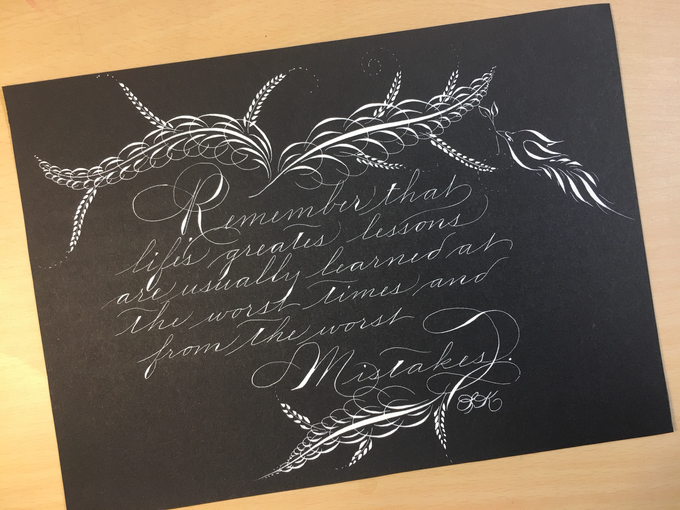 Remember that
life's greates lessons
are usually learned at
the worst times and
from the worst
Mistakes.